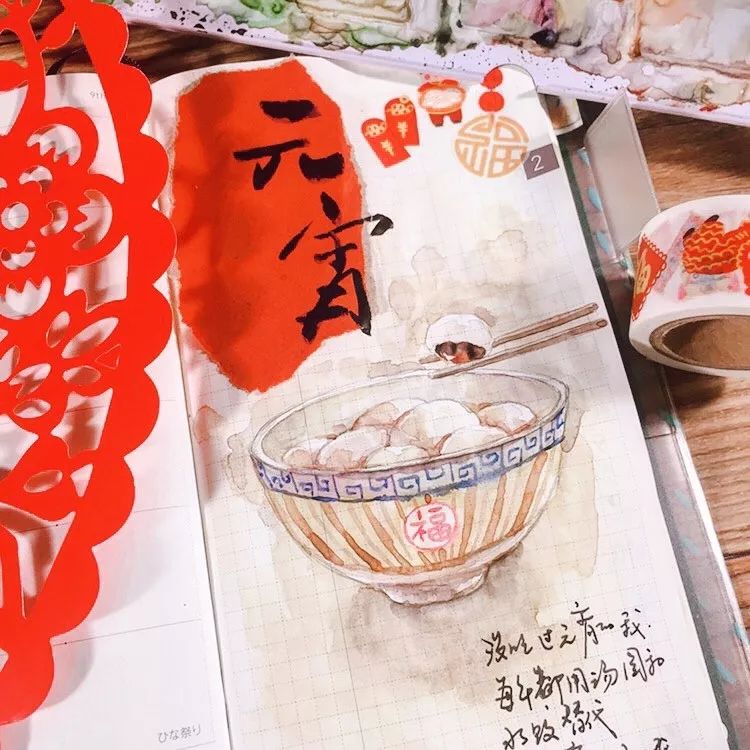 元
宵
福
2
福
没吃过元宵的我.
每年都用汤圆和
水饺替代
ひな祭り